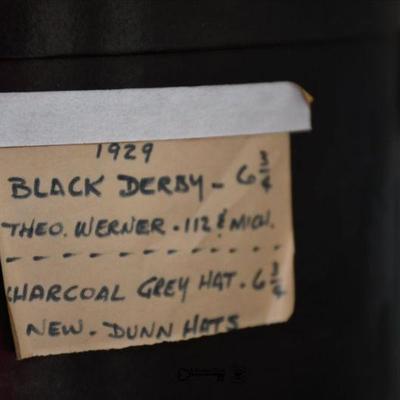 1929
BLACK DERBY - 6 3/4
THEO. WERNER - 112 & MICH.
CHARCOAL GREY HAT - 6 3/4
NEW - DUNN HATS